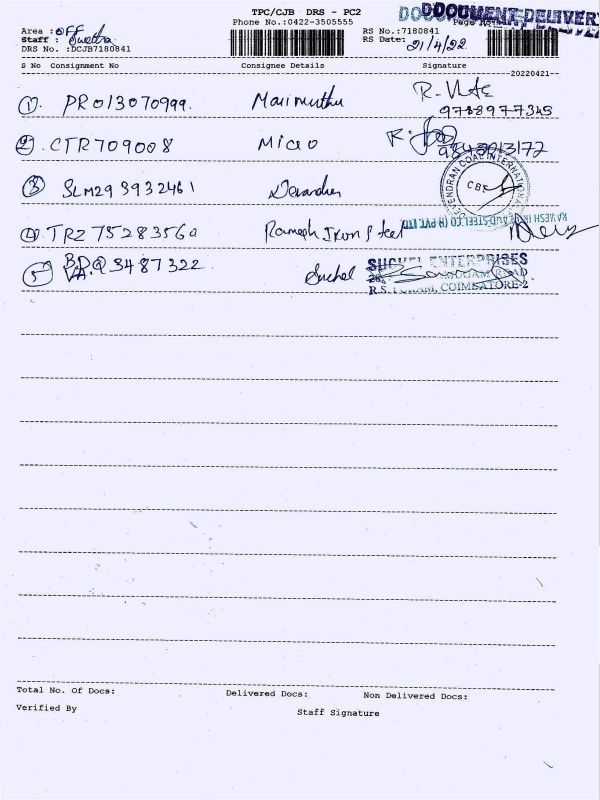 TPC/CJB DRS - PC2
Phone No.:0422-3505555
DOCUMENT DELIVERY
Area : OFF
Staff : Swetha
DRS No. :DCJB7180841
RS No.:7180841
RS Date: 21/4/22
S No Consignment No Consignee Details Signature
20220421--
1. PRO13070999. Marimuthu
9788977345
2 CTR709008 Micro
9843013172
3 SLM293932461 Devandren
DEVENDRAN COAL INTERNATIONAL
CBE
4. TRZ 75283560 Ramesh Iron Steel
RAMESH IRON AND STEEL CO (I) PVT. LTD.
5 3487322 Suchel
SUCHEL ENTERPRISES
ROAD
R.S. PURAM, COIMBATORE-2
Total No. Of Docs: Delivered Docs: Non Delivered Docs:
Verified By Staff Signature